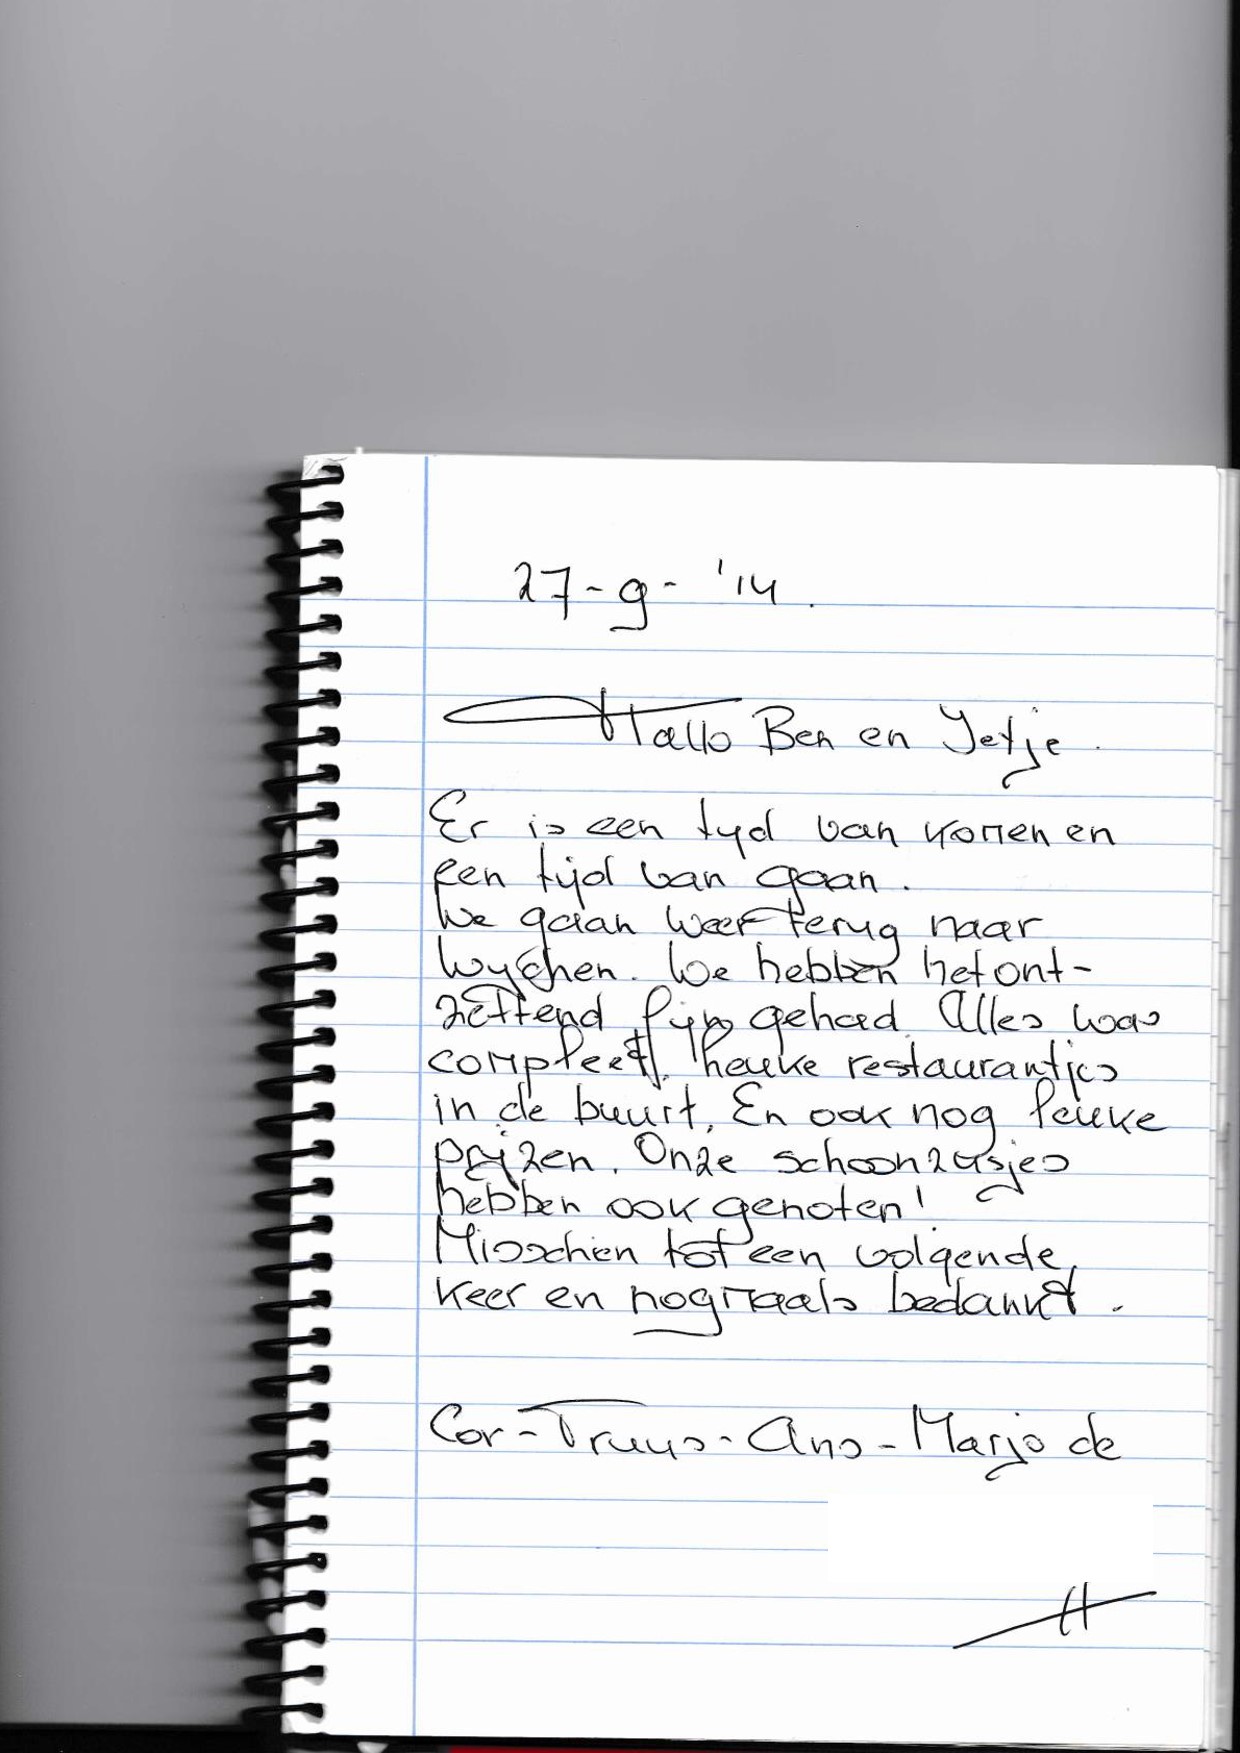 27-9-'14.
Hallo Ben en Yetje.
Er is een tyd van komen en
een tijd van gaan.
We gaan weer terug naar
Wychen. We hebben het ont-
zettend fijn gehad. Alles was
compleet. Leuke restaurantjes
in de buurt. En ook nog leuke
prijzen. Onze schoonzusjes
hebben ook genoten!
Misschien tot een volgende
keer en nogmaals bedankt.
Cor-Truus-Ans-Marjo de